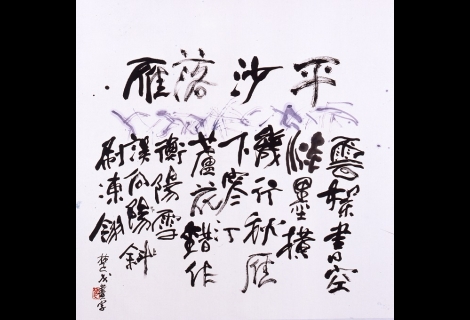 平沙落雁
雲書空
淡墨橫
幾行秋雁
下寒汀
蘆花錯作
衡陽雪
誤向陽斜
刷凍翎
楚戈